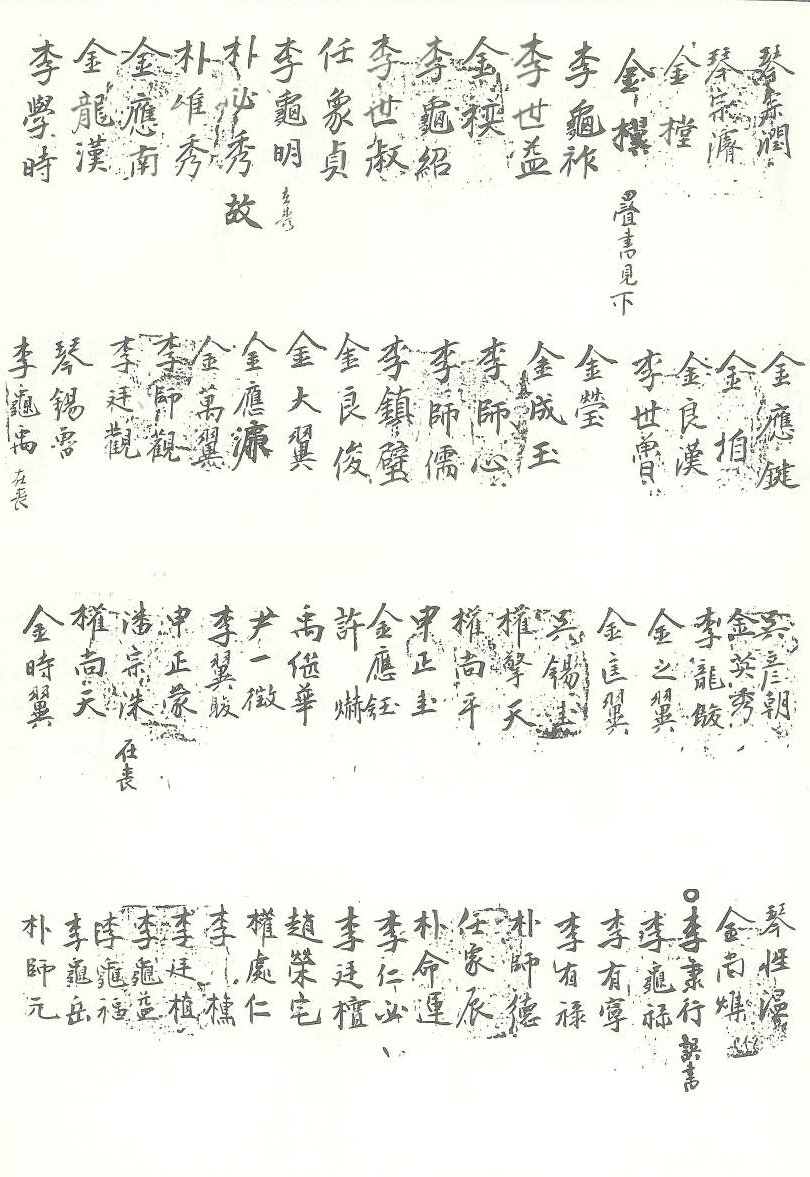 琴壽潤
琴宗濟
金樘
金欏 疊書見下
李龜祚
李世益
金楧
李龜紹
李世淑
任象貞
李龜明 在喪
朴必秀 故
朴惟秀
金應南
金龍漢
李學時
金應鍵
金柏
金良漢
李世曾
金瑩
金成玉
李師心
李師儒
李鎮壁
金良俊
金大翼
金應濂
金萬翼
李師觀
李廷觀
琴錫魯
李龜禹 在喪
吳彦朝
金英秀
李龍駿
金之翼
金匡翼
吳錫圭
權擎天
權尚平
申正圭
金應鈺
許爀
禹偀華
尹一徵
李翼駿
申正蒙
潘宗洙 在喪
權尚天
金時翼
琴性漫
金尚爗
李秉行 誤書
李龜祿
李有享
李宥祿
朴師德
任家辰
朴命運
李仁必
李廷檀
趙榮宅
權處仁
李櫄
李廷植
李龜益
李龜福
李龜岳
朴師元